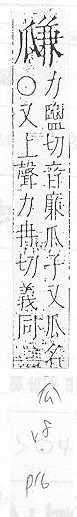 㼓
力鹽切音廉瓜子又瓜名
○又上聲力冉切義同
瓜
v8
p16